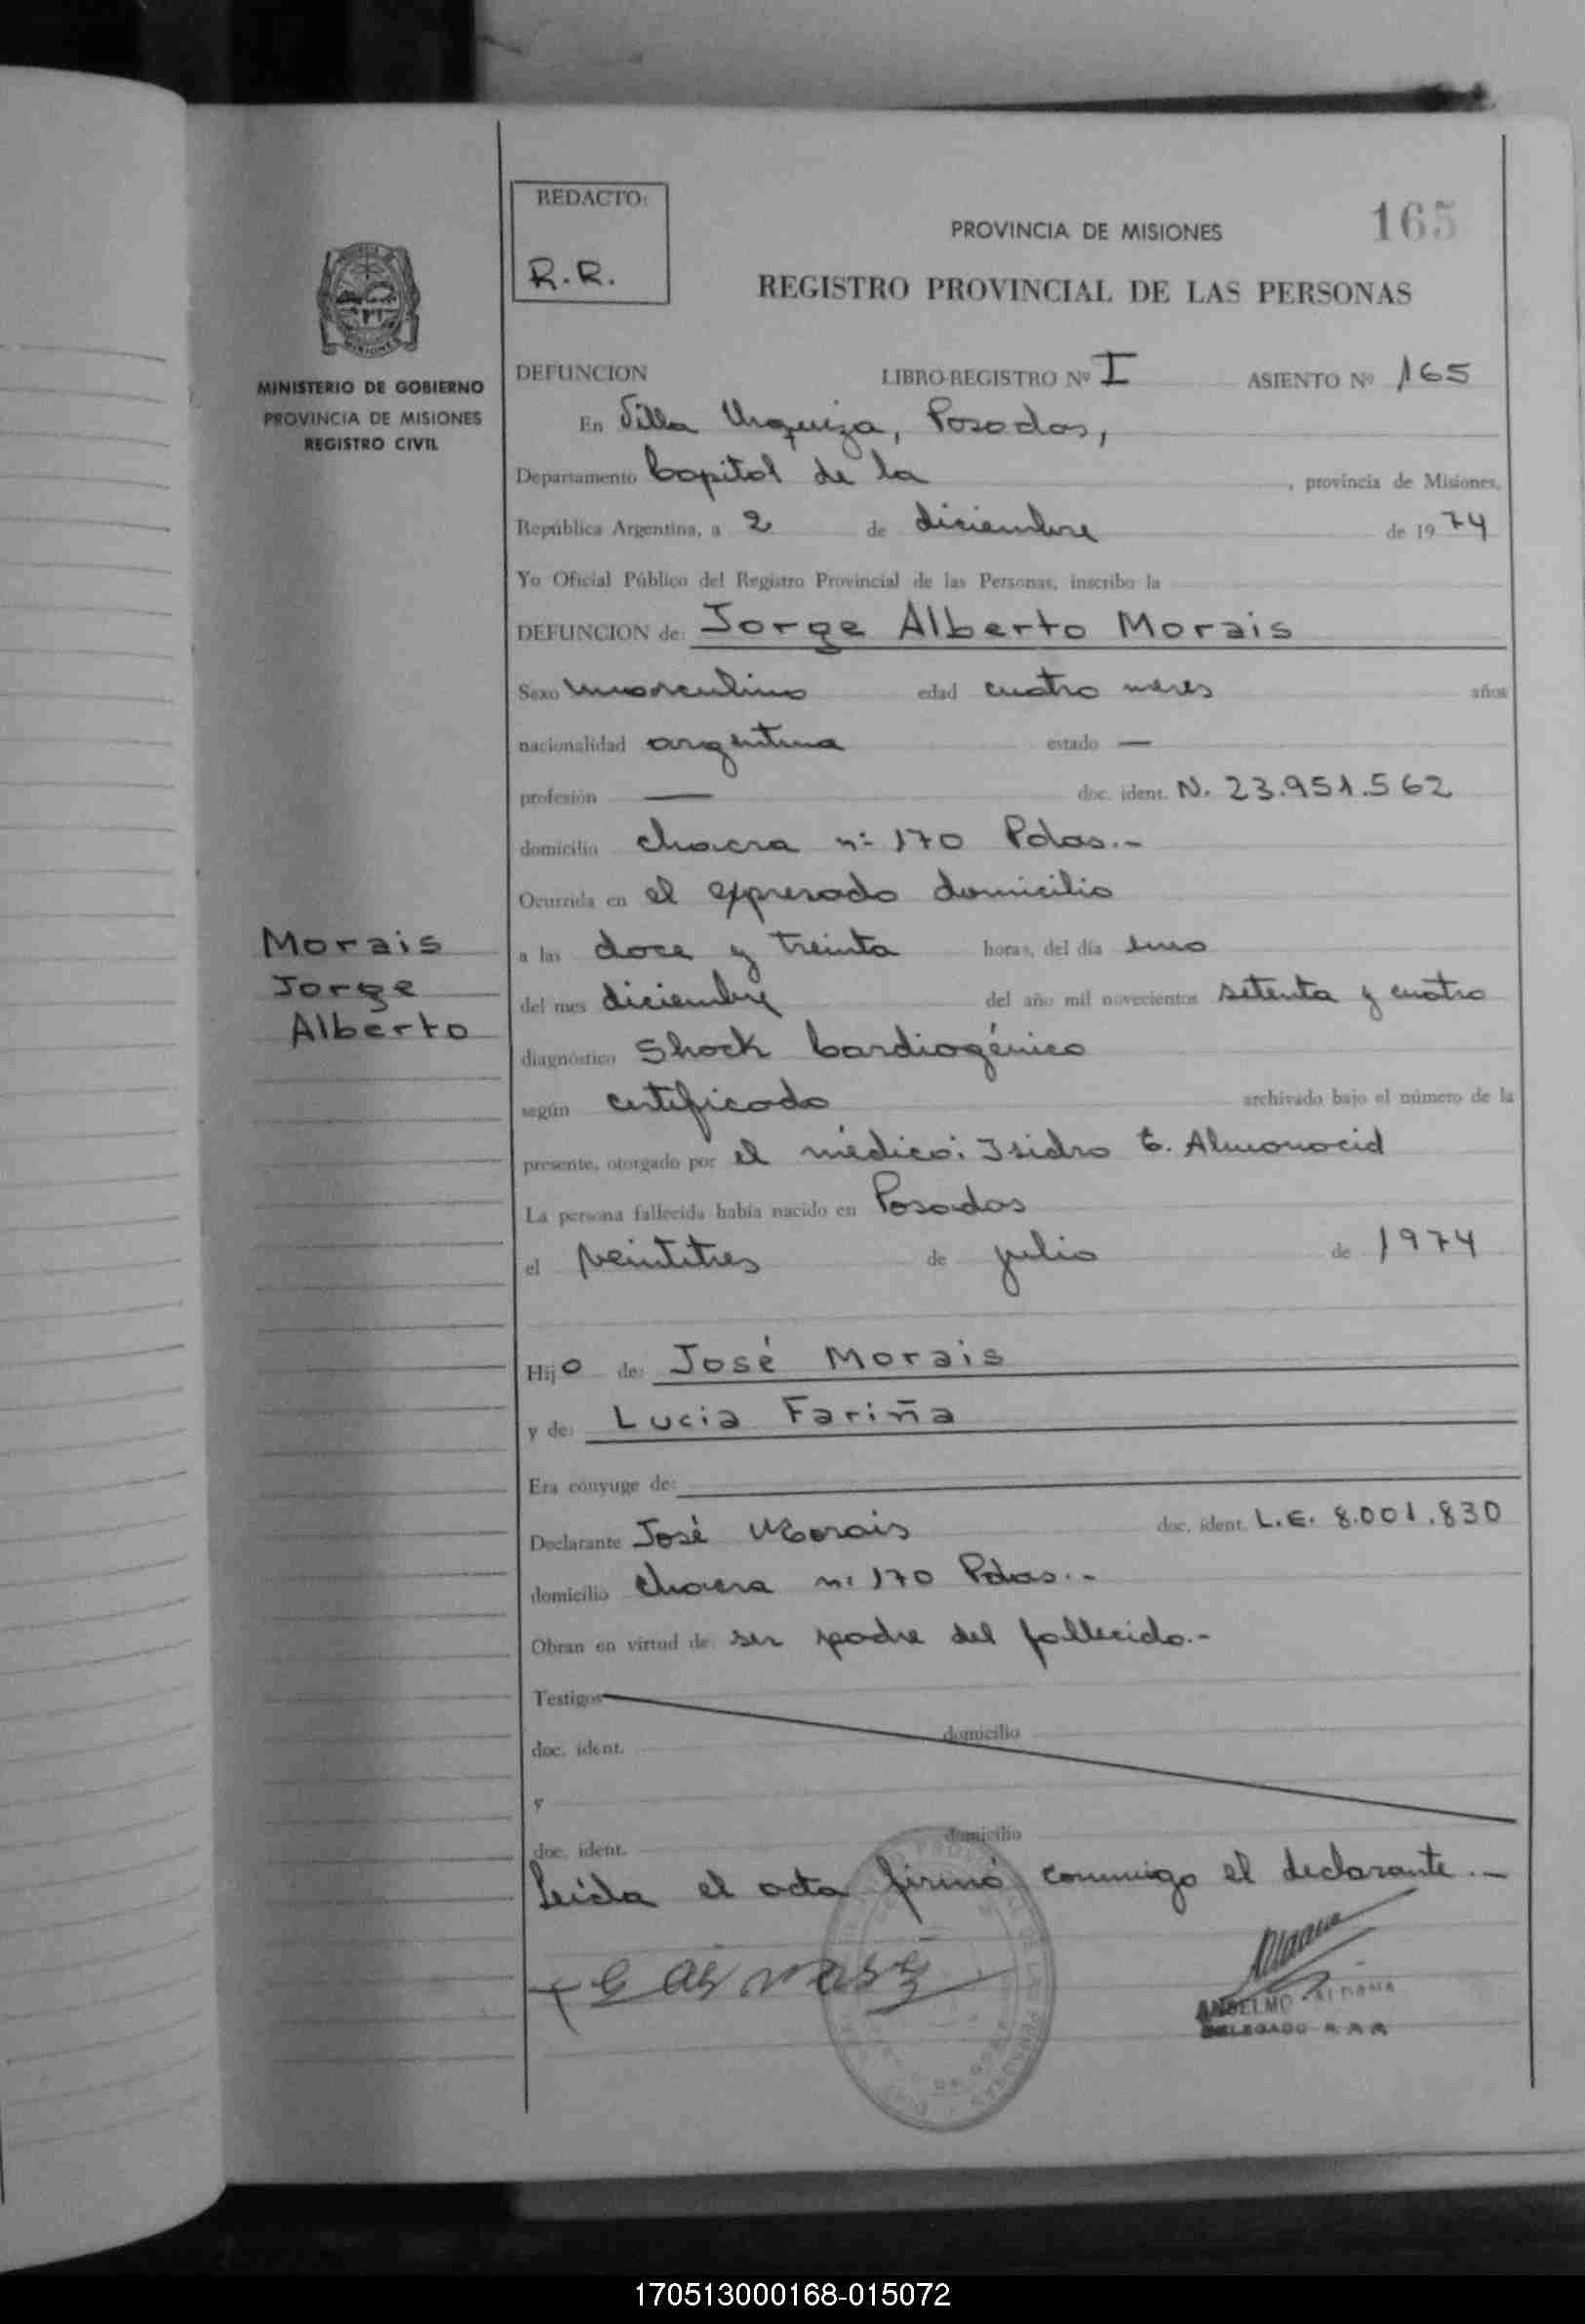 REDACTO:
R.R.
165
PROVINCIA DE MISIONES
REGISTRO PROVINCIAL DE LAS PERSONAS
MINISTERIO DE GOBIERNO
PROVINCIA DE MISIONES
REGISTRO CIVIL
DEFUNCION LIBRO-REGISTRO Nº I ASIENTO Nº 165
En Villa Urquiza, Posadas,
Departamento Capital de la , provincia de Misiones,
República Argentina, a 2 de diciembre de 1974
Yo Oficial Público del Registro Provincial de las Personas, inscribo la
DEFUNCION de: Jorge Alberto Morais
Sexo masculino edad cuatro meses años
nacionalidad argentina estado —
profesión — doc. ident. N. 23.951.562
domicilio chacra nº 170 Pdas.-
Ocurrida en el expresado domicilio
Morais
Jorge
Alberto
a las doce y treinta horas, del día uno
del mes diciembre del año mil novecientos setenta y cuatro
diagnóstico Shock Cardiogénico
según certificado archivado bajo el número de la
presente, otorgado por el médico: Isidro E. Almonocid
La persona fallecida había nacido en Posadas
el veintitres de julio de 1974
Hijo de: José Morais
y de: Lucia Fariña
Era conyuge de:
Declarante José Morais doc. ident. L.E. 8.001.830
domicilio chacra nº 170 Pdas.-
Obran en virtud de ser padre del fallecido.-
Testigos
doc. ident. domicilio
y
doc. ident. domicilio
Leída el acta firmó conmigo el declarante.-
ANSELMO
DELEGADO R.P.P.
170513000168-015072